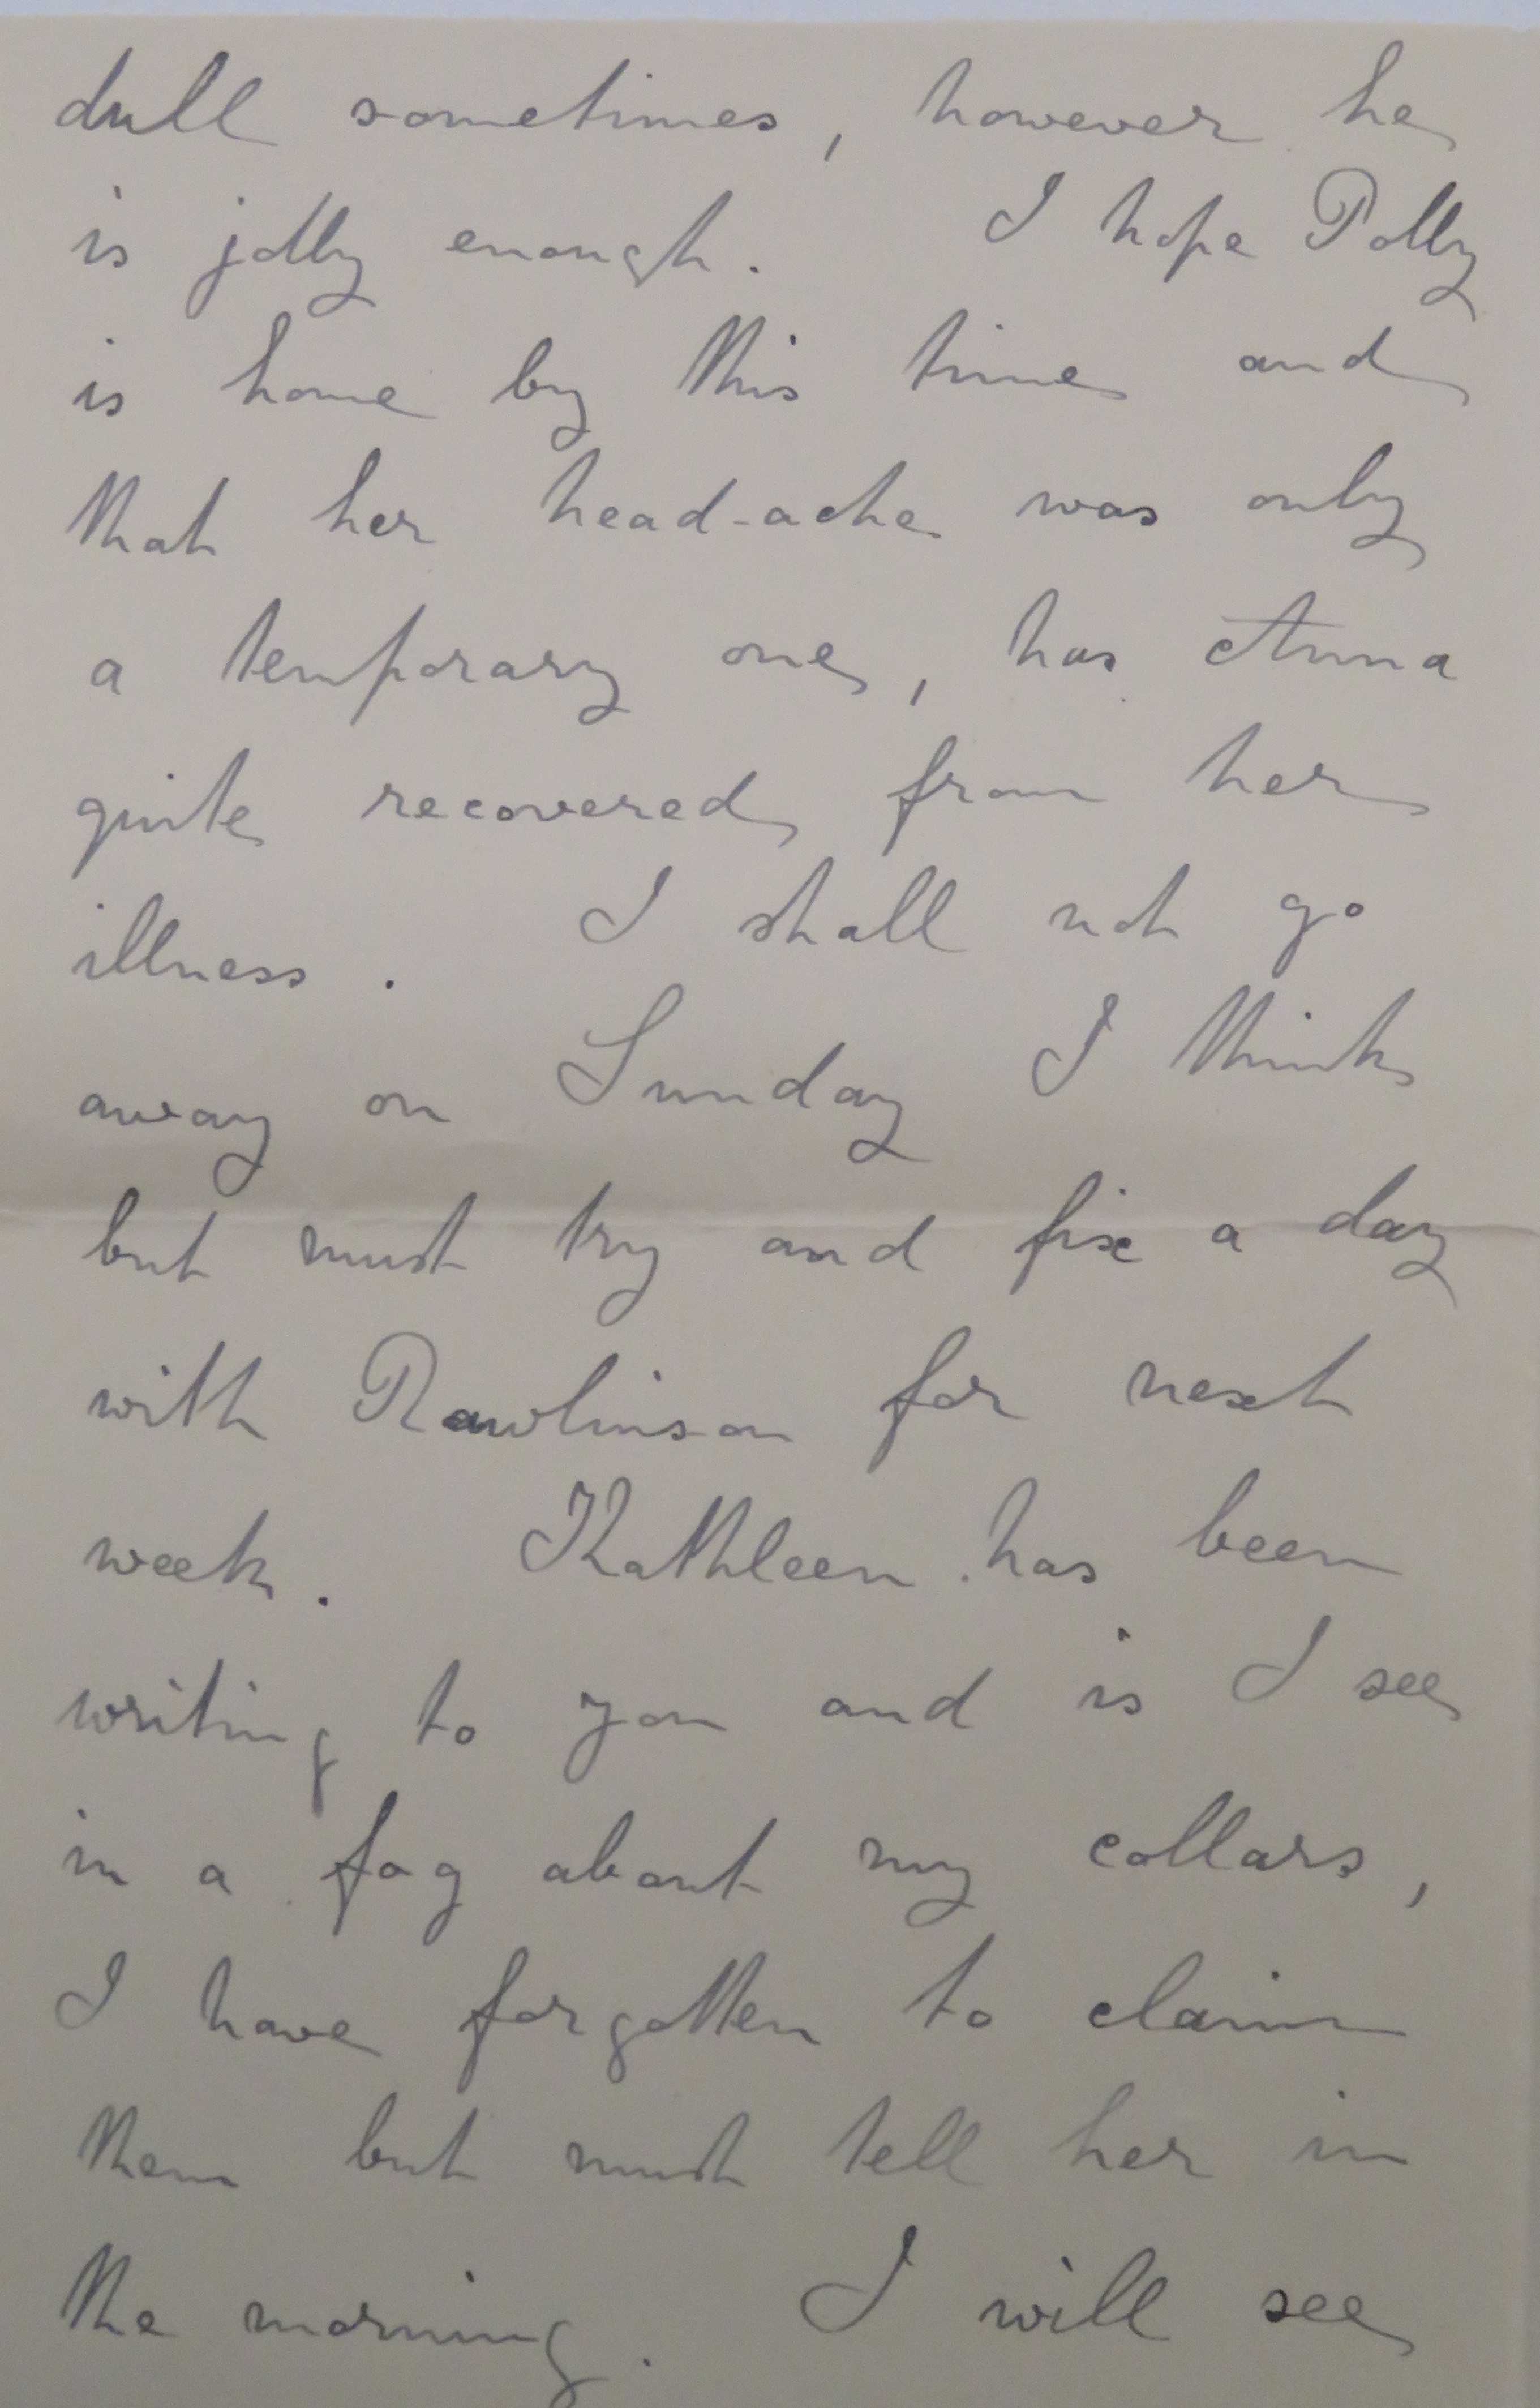 dull sometimes, however he
is jolly enough. I hope Polly
is home by this time and
that her head-ache was only
a temporary one, has Anna
quite recovered from her
illness. I shall not go
away on Sunday I think
but must try and fix a day
with Rawlinson for next
week. Kathleen has been
writing to you and is I see
in a fog about my collars,
I have forgotten to claim
them but must tell her in
the morning. I will see